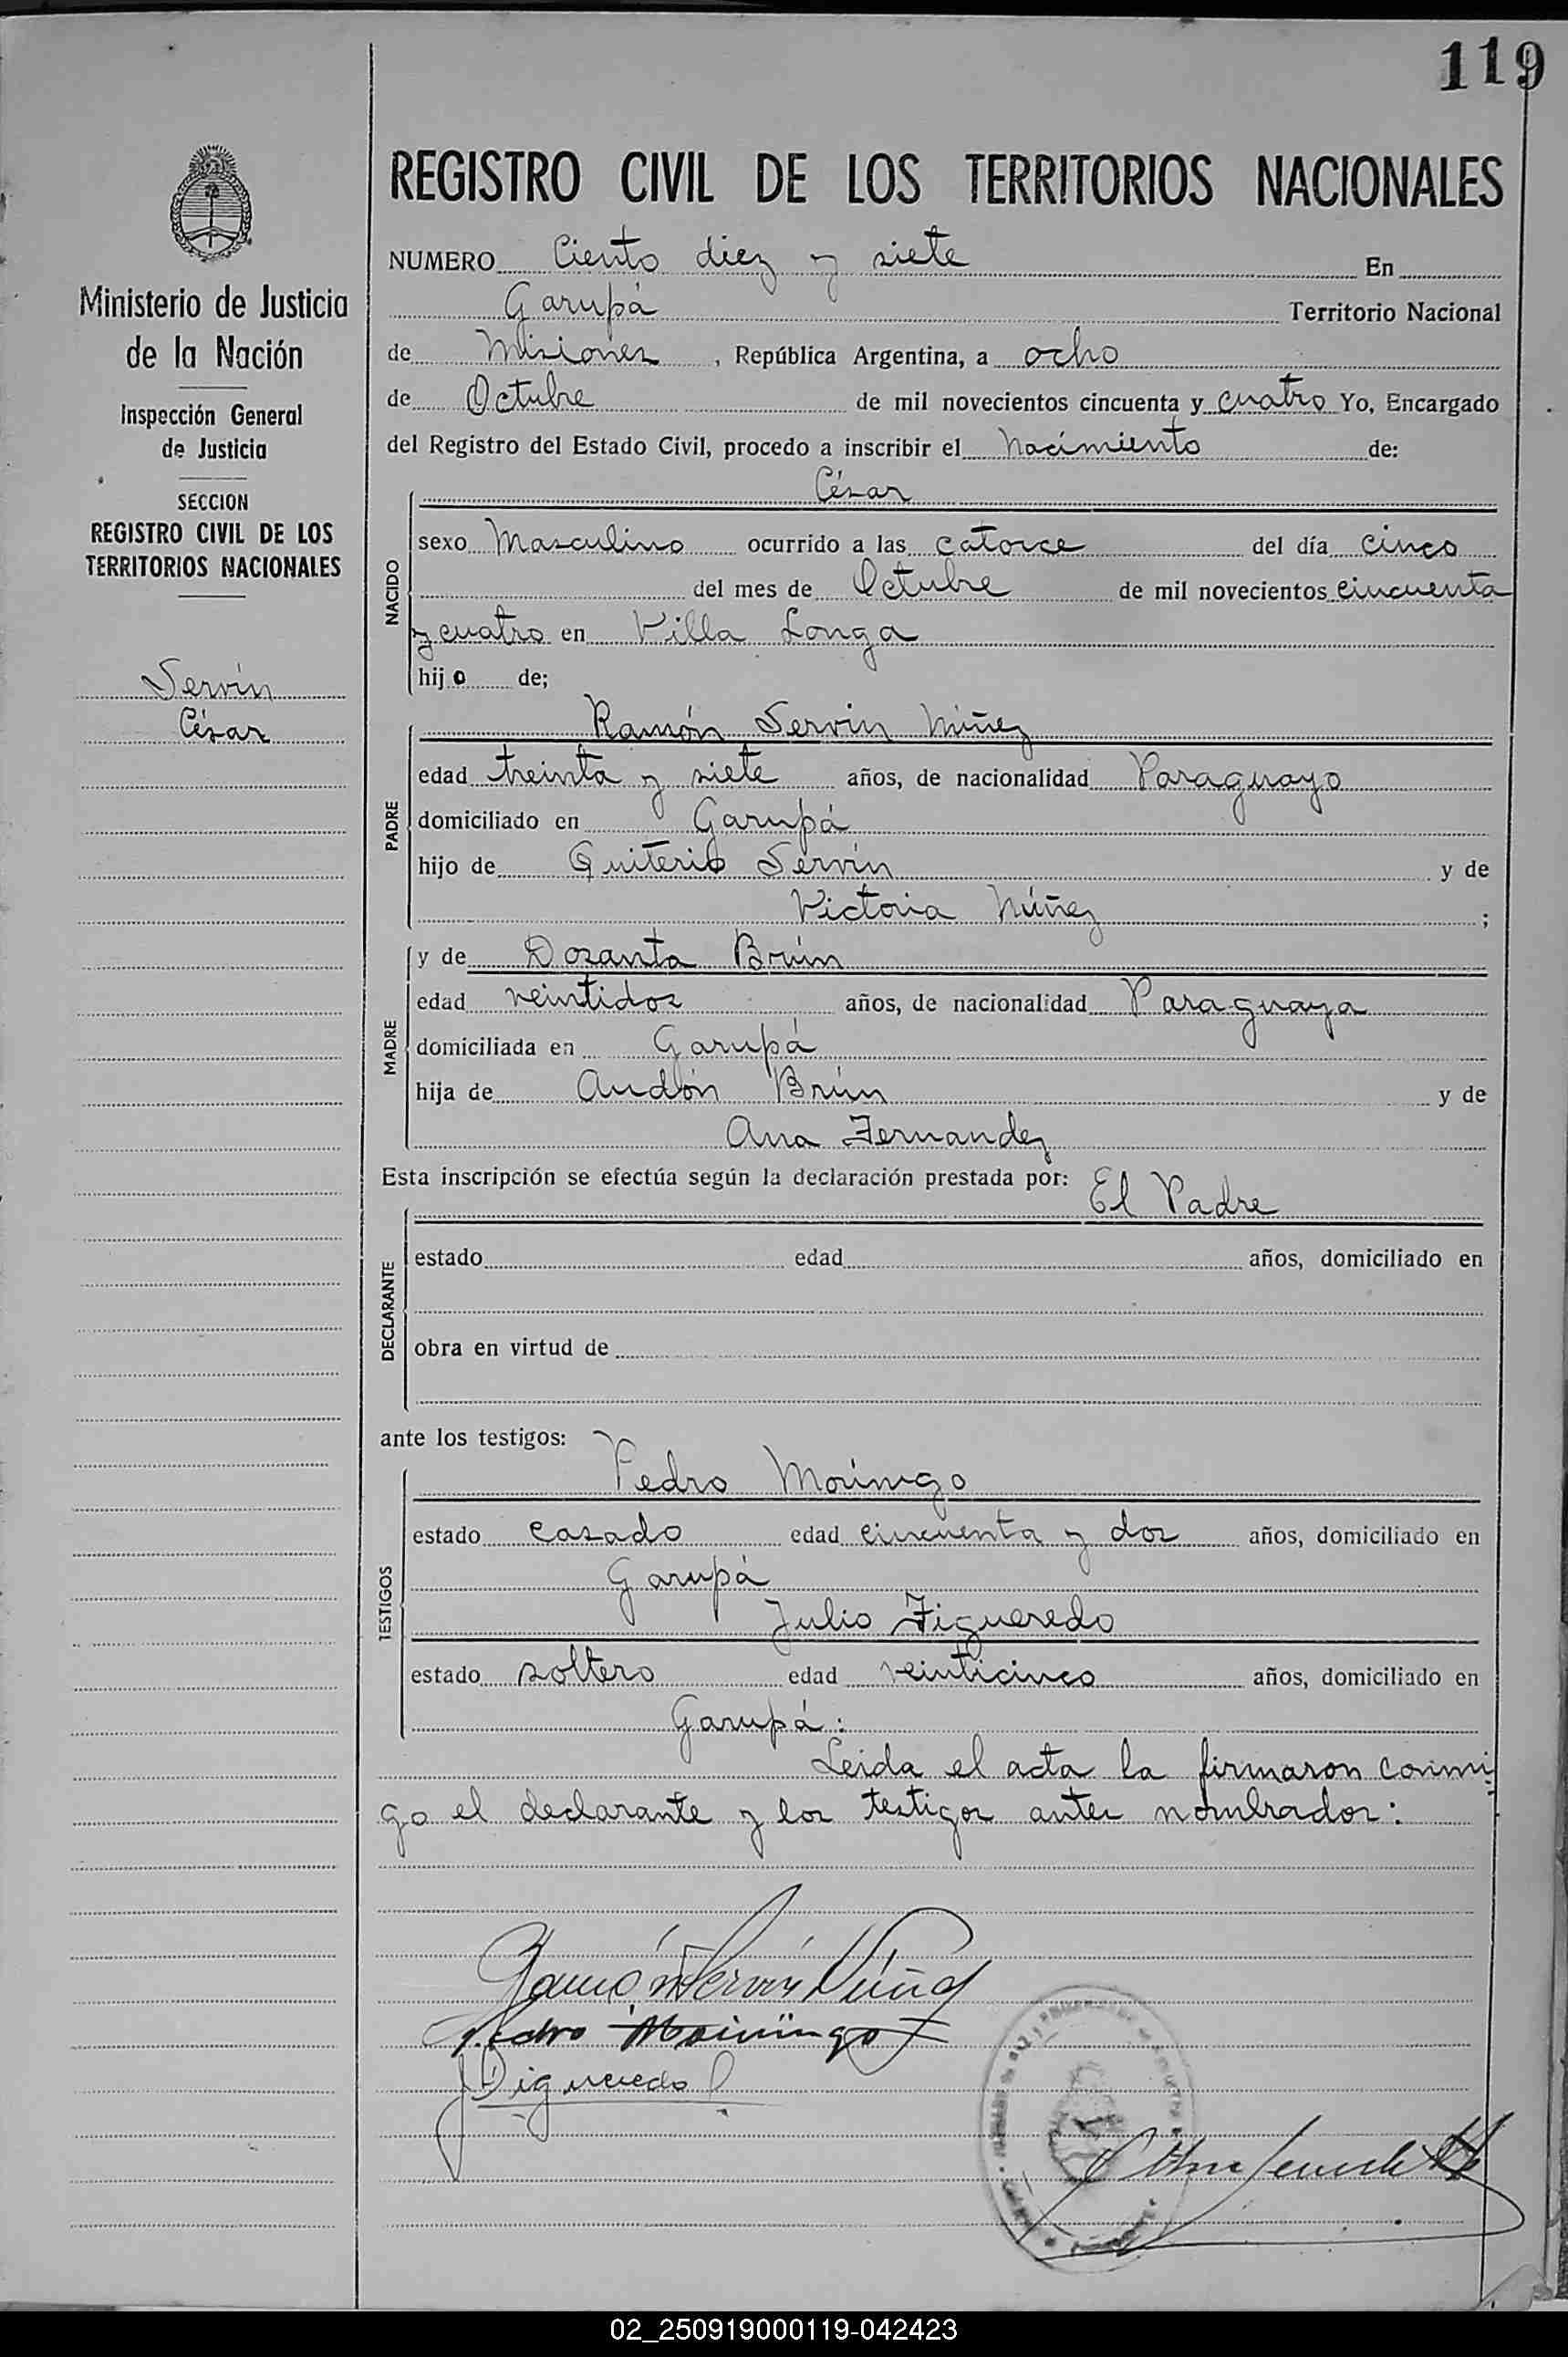 119
REGISTRO CIVIL DE LOS TERRITORIOS NACIONALES
NUMERO Ciento diez y siete En
Garupá Territorio Nacional
de Misiones, República Argentina, a ocho
de Octubre de mil novecientos cincuenta y cuatro Yo, Encargado
del Registro del Estado Civil, procedo a inscribir el Nacimiento de:
Ministerio de Justicia
de la Nación
Inspección General
de Justicia
SECCION
REGISTRO CIVIL DE LOS
TERRITORIOS NACIONALES
Servín
César
NACIDO
César
sexo Masculino ocurrido a las catorce del día cinco
del mes de Octubre de mil novecientos cincuenta
y cuatro en Villa Longa
hijo de;
PADRE
Ramón Servín Núñez
edad treinta y siete años, de nacionalidad Paraguayo
domiciliado en Garupá
hijo de Quiterio Servín y de
Victoria Núñez ;
MADRE
y de Dosanta Brún
edad veintidos años, de nacionalidad Paraguaya
domiciliada en Garupá
hija de Audón Brún y de
Ana Fernandez
Esta inscripción se efectúa según la declaración prestada por: El Padre
DECLARANTE
estado edad años, domiciliado en
obra en virtud de
ante los testigos:
TESTIGOS
Pedro Morínigo
estado casado edad cincuenta y dos años, domiciliado en
Garupá
Julio Figueredo
estado soltero edad veinticinco años, domiciliado en
Garupá:
Leida el acta la firmaron conmi
go el declarante y los testigos antes nombrados:
Ramón Servín Núñez
Pedro Moiningo
J Figueredo
02_250919000119-042423